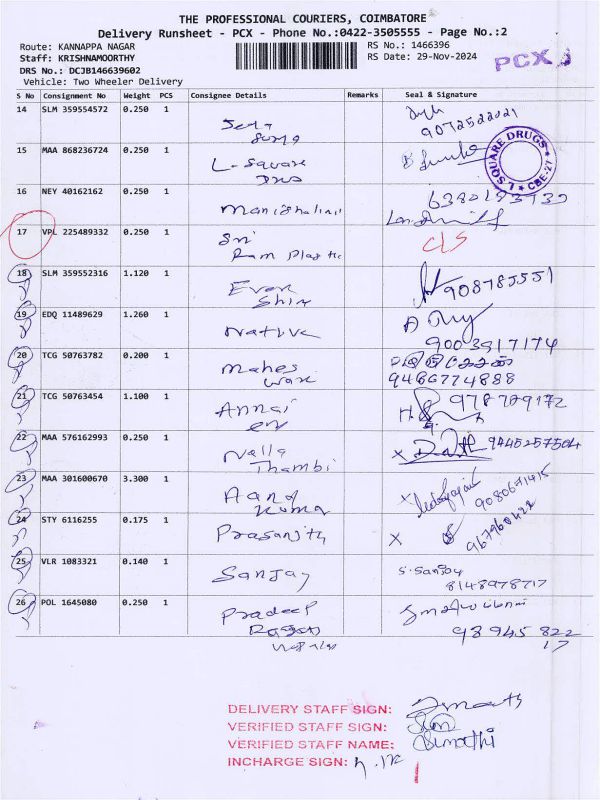 THE PROFESSIONAL COURIERS, COIMBATORE
Delivery Runsheet - PCX - Phone No.:0422-3505555 - Page No.:2
Route: KANNAPPA NAGAR RS No.: 1466396
Staff: KRISHNAMOORTHY RS Date: 29-Nov-2024
PCX
DRS No.: DCJB146639602
Vehicle: Two Wheeler Delivery
S No Consignment No Weight PCS Consignee Details Remarks Seal & Signature
14 SLM 359554572 0.250 1
9072522021
15 MAA 868236724 0.250 1 L-Square
L SQUARE DRUGS ★ CBE-27 ★
16 NEY 40162162 0.250 1 Manishalini
17 VPL 225489332 0.250 1 Sri
Ram Plastic
CLS
18 SLM 359552316 1.120 1 Ever
Shin
908785551
19 EDQ 11489629 1.260 1 Native
9003917174
20 TCG 50763782 0.200 1 Mahes
9486774888
21 TCG 50763454 1.100 1 Annai
978729172
22 MAA 576162993 0.250 1 Nalla
Thambi
X 9445257504
23 MAA 301600670 3.300 1 Aand
Kumar
X
24 STY 6116255 0.175 1 Prasanjth
X
25 VLR 1083321 0.140 1 Sanjay
S.Sanjay
8148978717
26 POL 1645080 0.250 1 Pradeep
Rajan
93945822
17
DELIVERY STAFF SIGN:
VERIFIED STAFF SIGN:
VERIFIED STAFF NAME: Sumathi
INCHARGE SIGN: